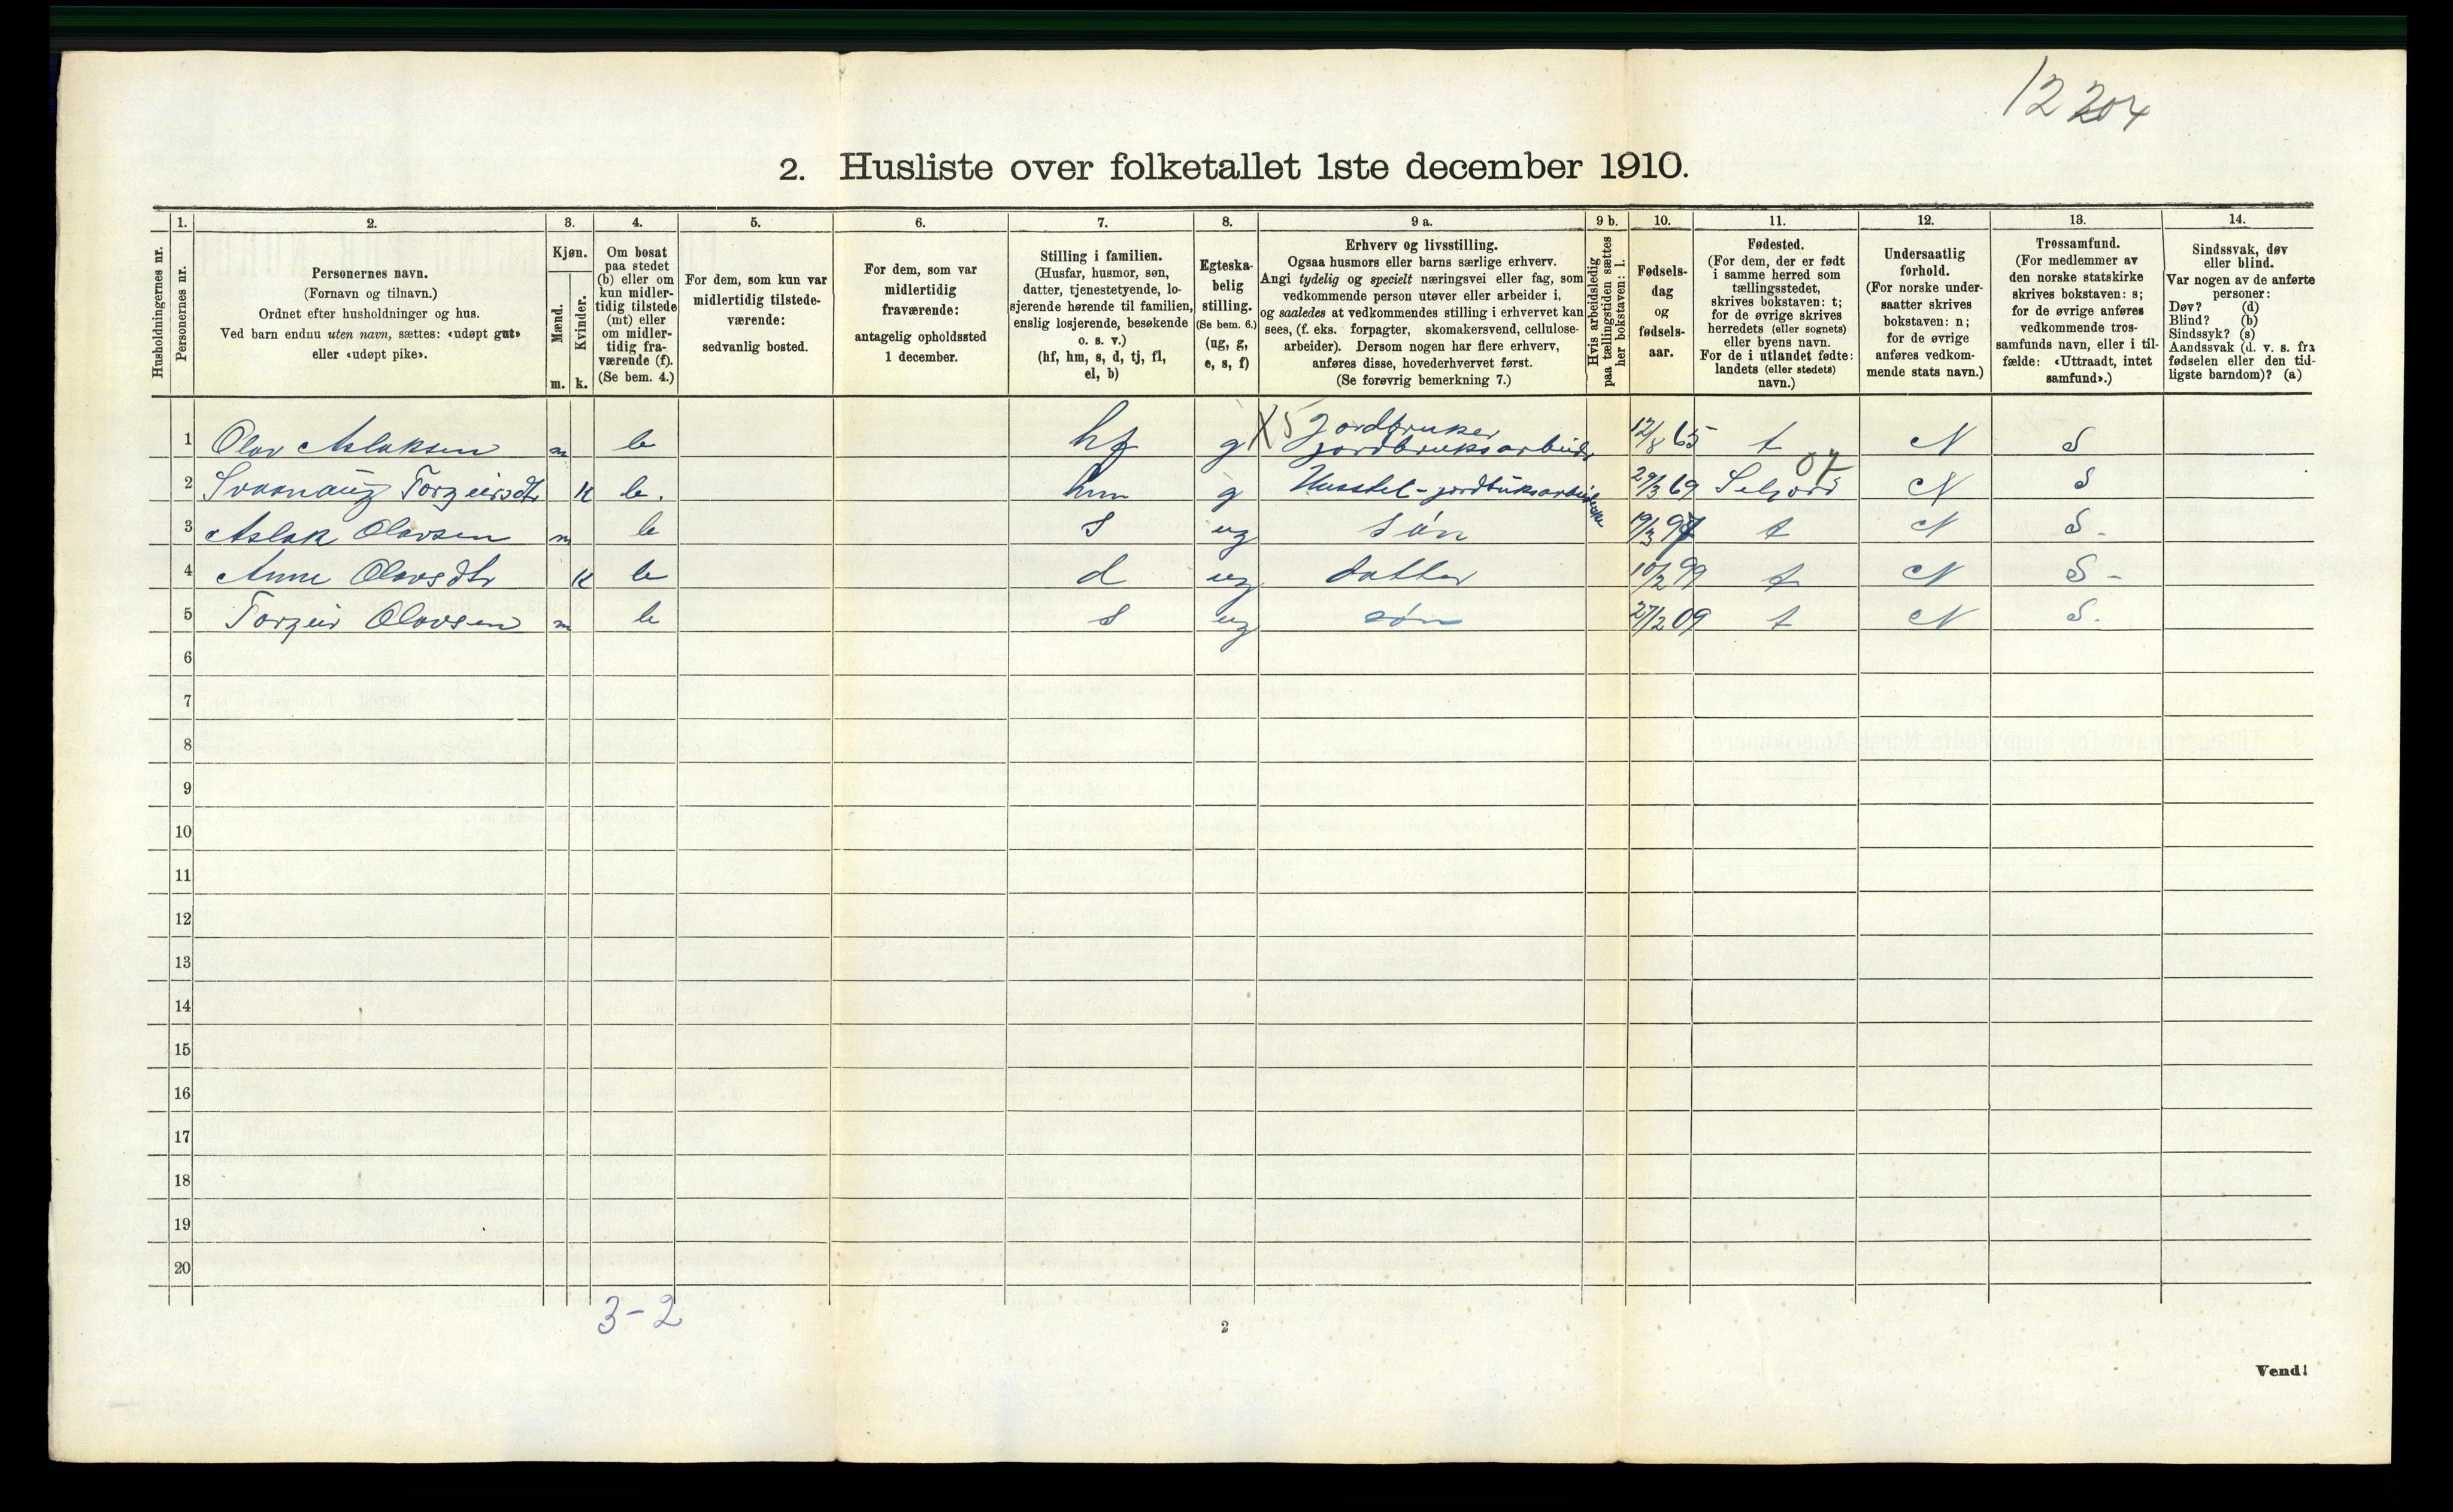 12 204
2. Husliste over folketallet 1ste december 1910.
Husholdningernes nr.
1.
Personernes nr.
2.
Personernes navn.
(Fornavn og tilnavn.)
Ordnet efter husholdninger og hus.
Ved barn endnu uten navn, sættes: «udøpt gut»
eller «udøpt pike».
3.
Kjøn.
Mænd.
Kvinder.
m. k.
4.
Om bosat
paa stedet
(b) eller om
kun midler-
tidig tilstede
(mt) eller
om midler-
tidig fra-
værende (f).
(Se bem. 4.)
5.
For dem, som kun var
midlertidig tilstede-
værende:
sedvanlig bosted.
6.
For dem, som var
midlertidig
fraværende:
antagelig opholdssted
1 december.
7.
Stilling i familien.
(Husfar, husmor, søn,
datter, tjenestetyende, lo-
sjerende hørende til familien,
enslig losjerende, besøkende
o. s. v.)
(hf, hm, s, d, tj, fl,
el, b)
8.
Egteska-
belig
stilling.
(Se bem. 6.)
(ug, g,
e, s, f)
9 a.
Erhverv og livsstilling.
Ogsaa husmors eller barns særlige erhverv.
Angi tydelig og specielt næringsvei eller fag, som
vedkommende person utøver eller arbeider i,
og saaledes at vedkommendes stilling i erhvervet kan
sees, (f. eks. forpagter, skomakersvend, cellulose-
arbeider). Dersom nogen har flere erhverv,
anføres disse, hovederhvervet først.
(Se forøvrig bemerkning 7.)
9 b.
Hvis arbeidsledig
paa tællingstiden sættes
her bokstaven: l.
10.
Fødsels-
dag
og
fødsels-
aar.
11.
Fødested.
(For dem, der er født
i samme herred som
tællingsstedet,
skrives bokstaven: t;
for de øvrige skrives
herredets (eller sognets)
eller byens navn.
For de i utlandet fødte:
landets (eller stedets)
navn.)
12.
Undersaatlig
forhold.
(For norske under-
saatter skrives
bokstaven: n;
for de øvrige
anføres vedkom-
mende stats navn.)
13.
Trossamfund.
(For medlemmer av
den norske statskirke
skrives bokstaven: s;
for de øvrige anføres
vedkommende tros-
samfunds navn, eller i til-
fælde: «Uttraadt, intet
samfund».)
14.
Sindssvak, døv
eller blind.
Var nogen av de anførte
personer:
Døv? (d)
Blind? (b)
Sindssyk? (s)
Aandssvak (d. v. s. fra
fødselen eller den tid-
ligste barndom)? (a)
1 Olav Aslaksen m b hf g X5 Jordbruker
jordbruksarbeider 12/8 65 t N S
2 Svanaug Torgeirsdtr k b. hm g Husstel-jordbruksarbeiderske 29/3 69 Seljord 07 N S
3 Aslak Olavsen m b s ug søn 19/3 97 t N S.
4 Anne Olavsdtr k b d ug datter 10/2 99 t N S-
5 Torgeir Olavsen m b s ug søn 27/2 09 t N S.
6
7
8
9
10
11
12
13
14
15
16
17
18
19
20
3-2
2
Vend!